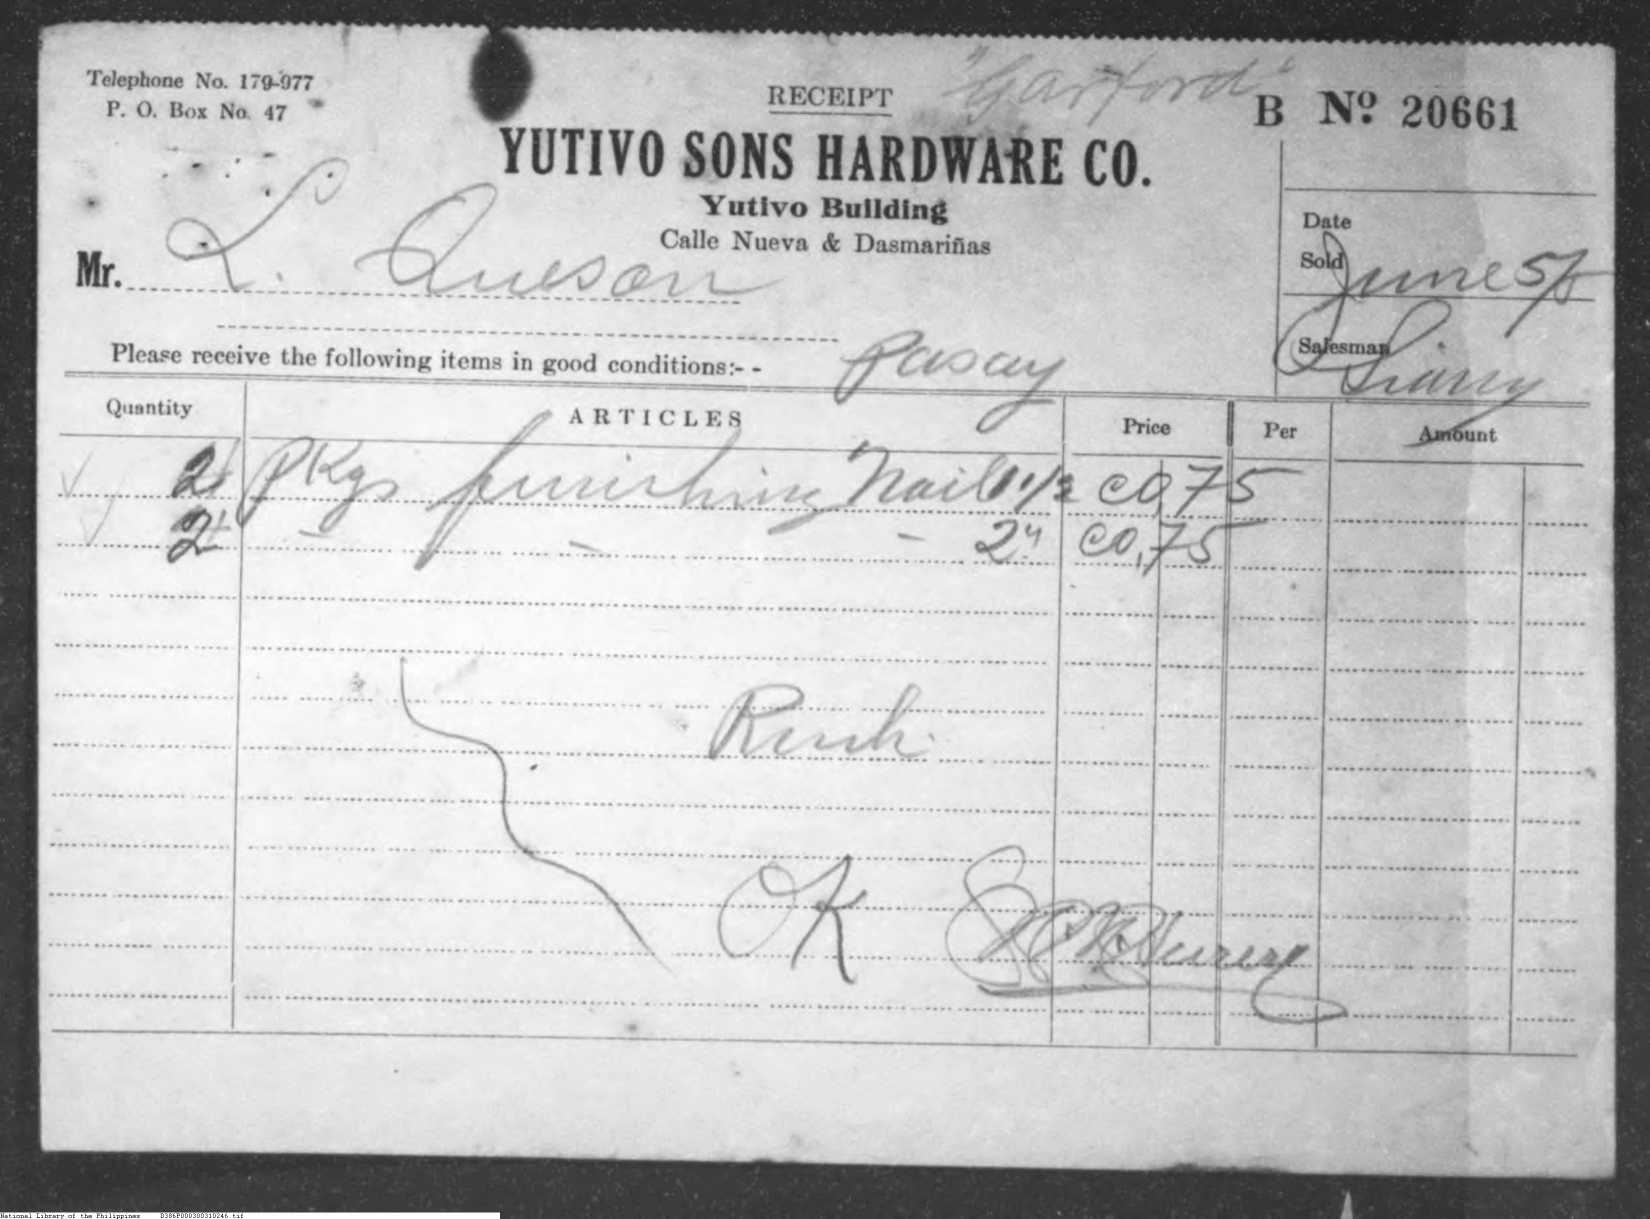 Telephone No. 179-977
P. O. Box No. 47
RECEIPT
"Garford"
B Nº 20661
YUTIVO SONS HARDWARE CO.
Yutivo Building
Calle Nueva & Dasmariñas
Mr. L. Queson
Date
Sold June 5/
Salesman
Please receive the following items in good conditions:- -
Pasay
Quantity ARTICLES Price Per Amount
2 Pkgs finishing Nail 1 1/2 @0,75
2 - - - 2" @0,75
Rush
OK
National Library of the Philippines D386P000300310246.tif